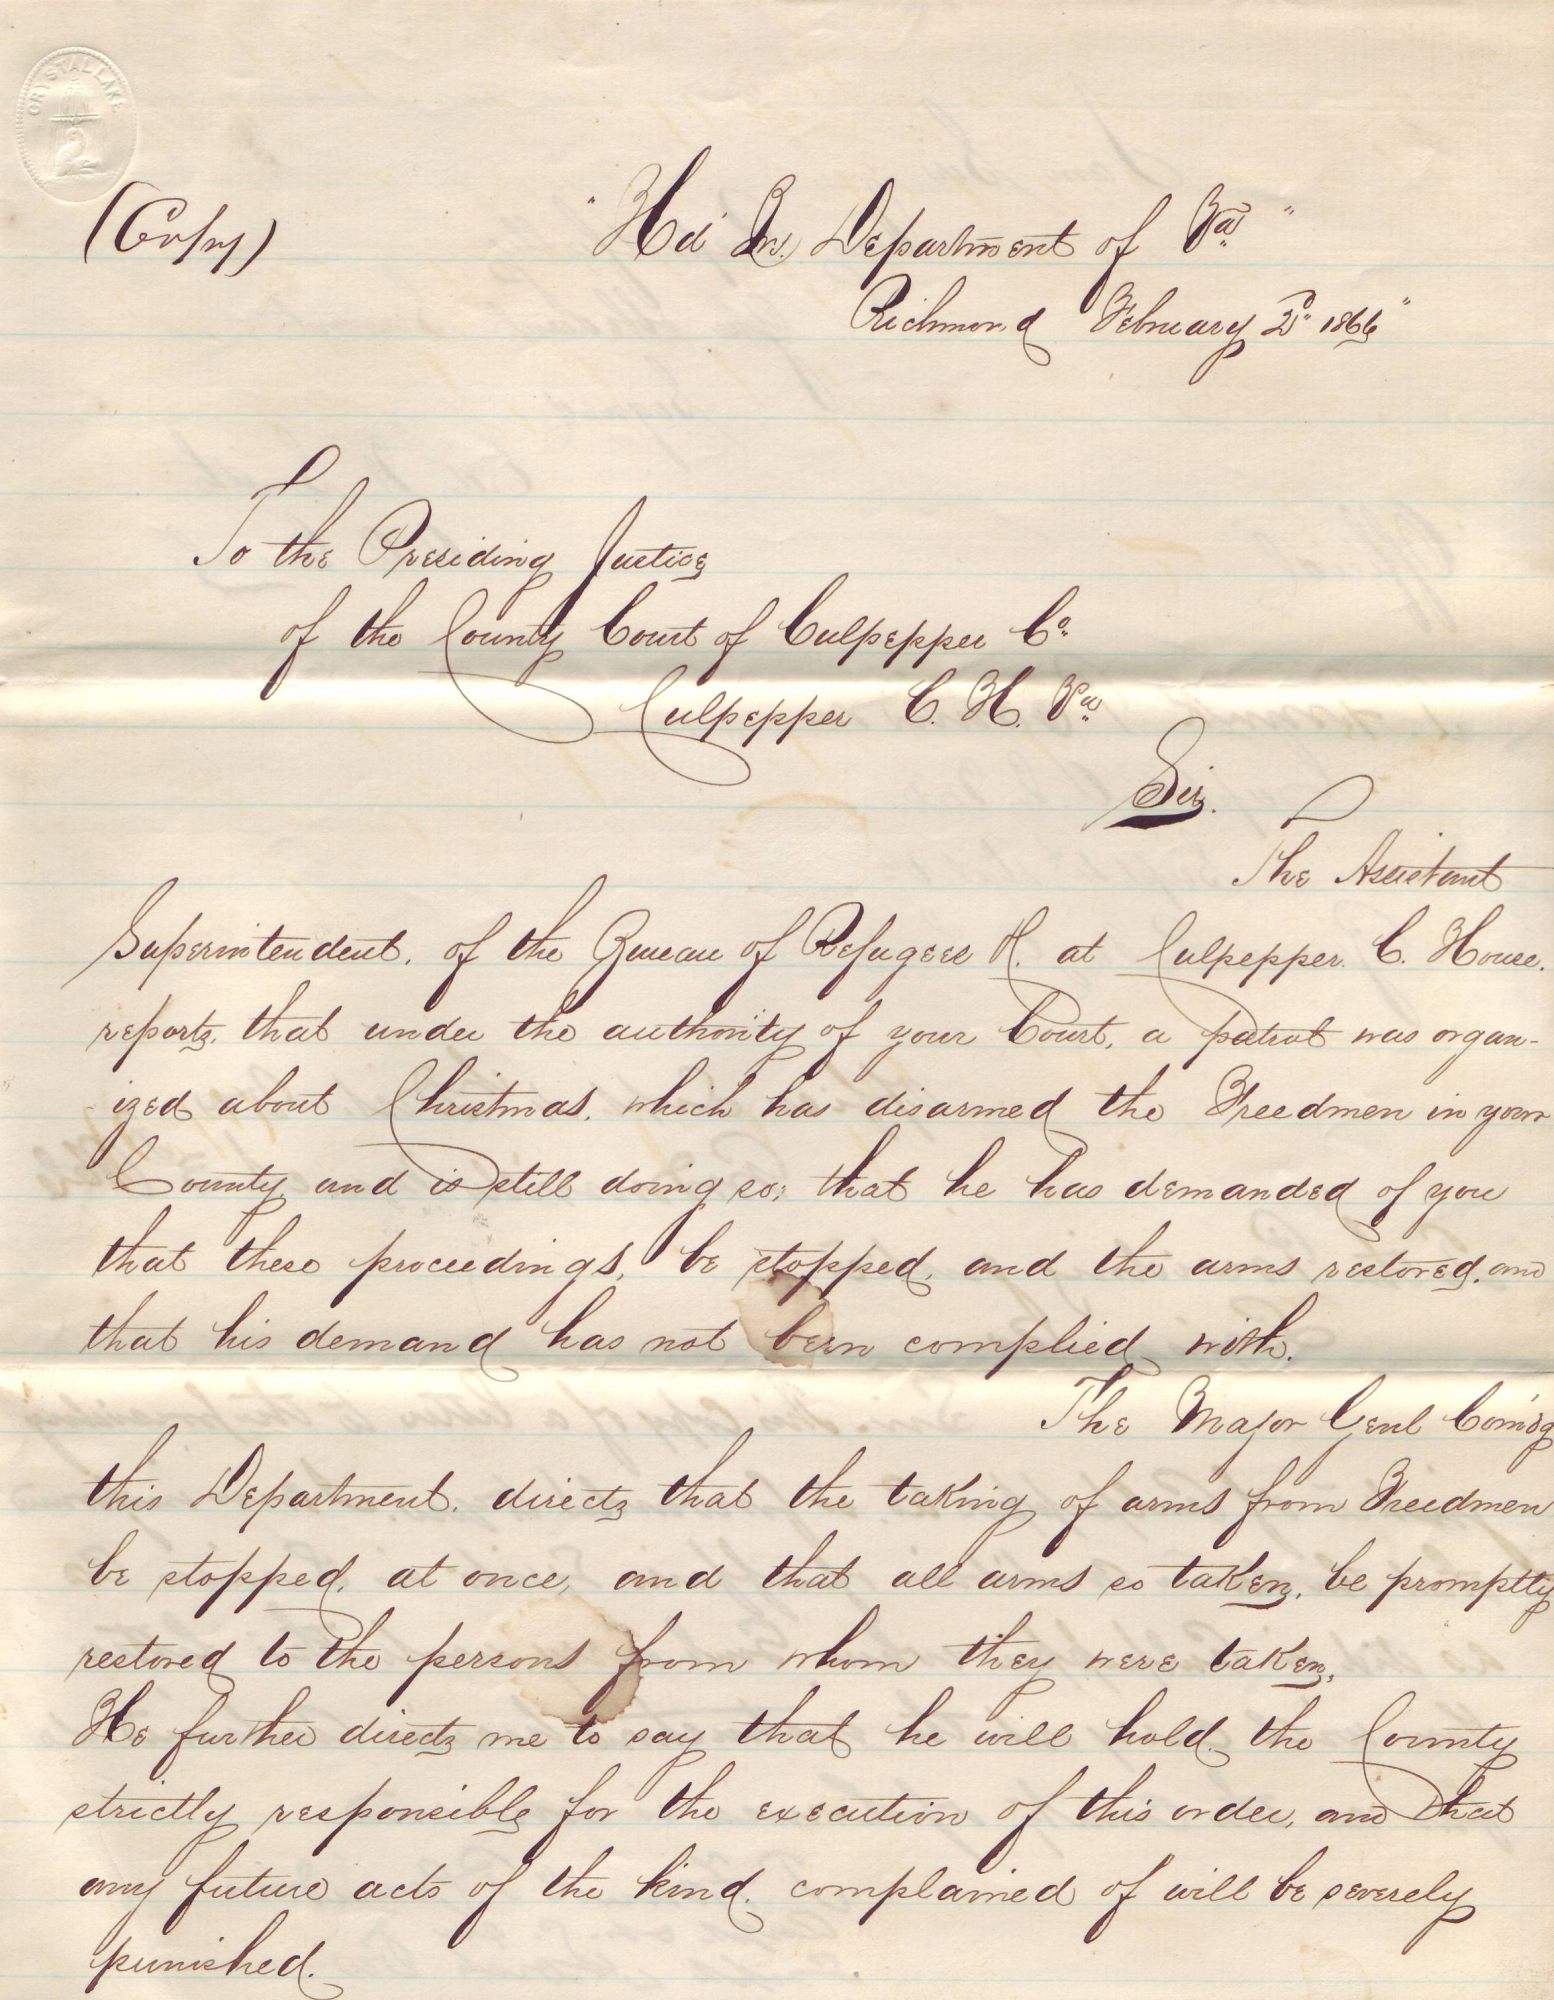 CRYSTAL LAKE
(Copy)
"Hd Qrs. Department of Va"
Richmond February 2d 1866"
To the Presiding Justice
of the County Court of Culpepper Co.
Culpepper C. H. Va
Sir.
The Assistant
Superintendent. of the Bureau of Refugees at Culpepper. C. House.
reports, that under the authority of your Court, a patrol was organ-
ized about Christmas. which has disarmed the Freedmen in your
County and is still doing so; that he has demanded of you
that these proceedings, be stopped, and the arms restored, and
that his demand has not been complied with.
The Major Genl Com'dg
this Department. directs that the taking of arms from Freedmen
be stopped, at once, and that all arms so taken, be promptly
restored to the persons from whom they were taken.
He further directs me to say that he will hold the County
strictly responsible for the execution of this order, and that
any future acts of the kind complained of will be severely
punished.